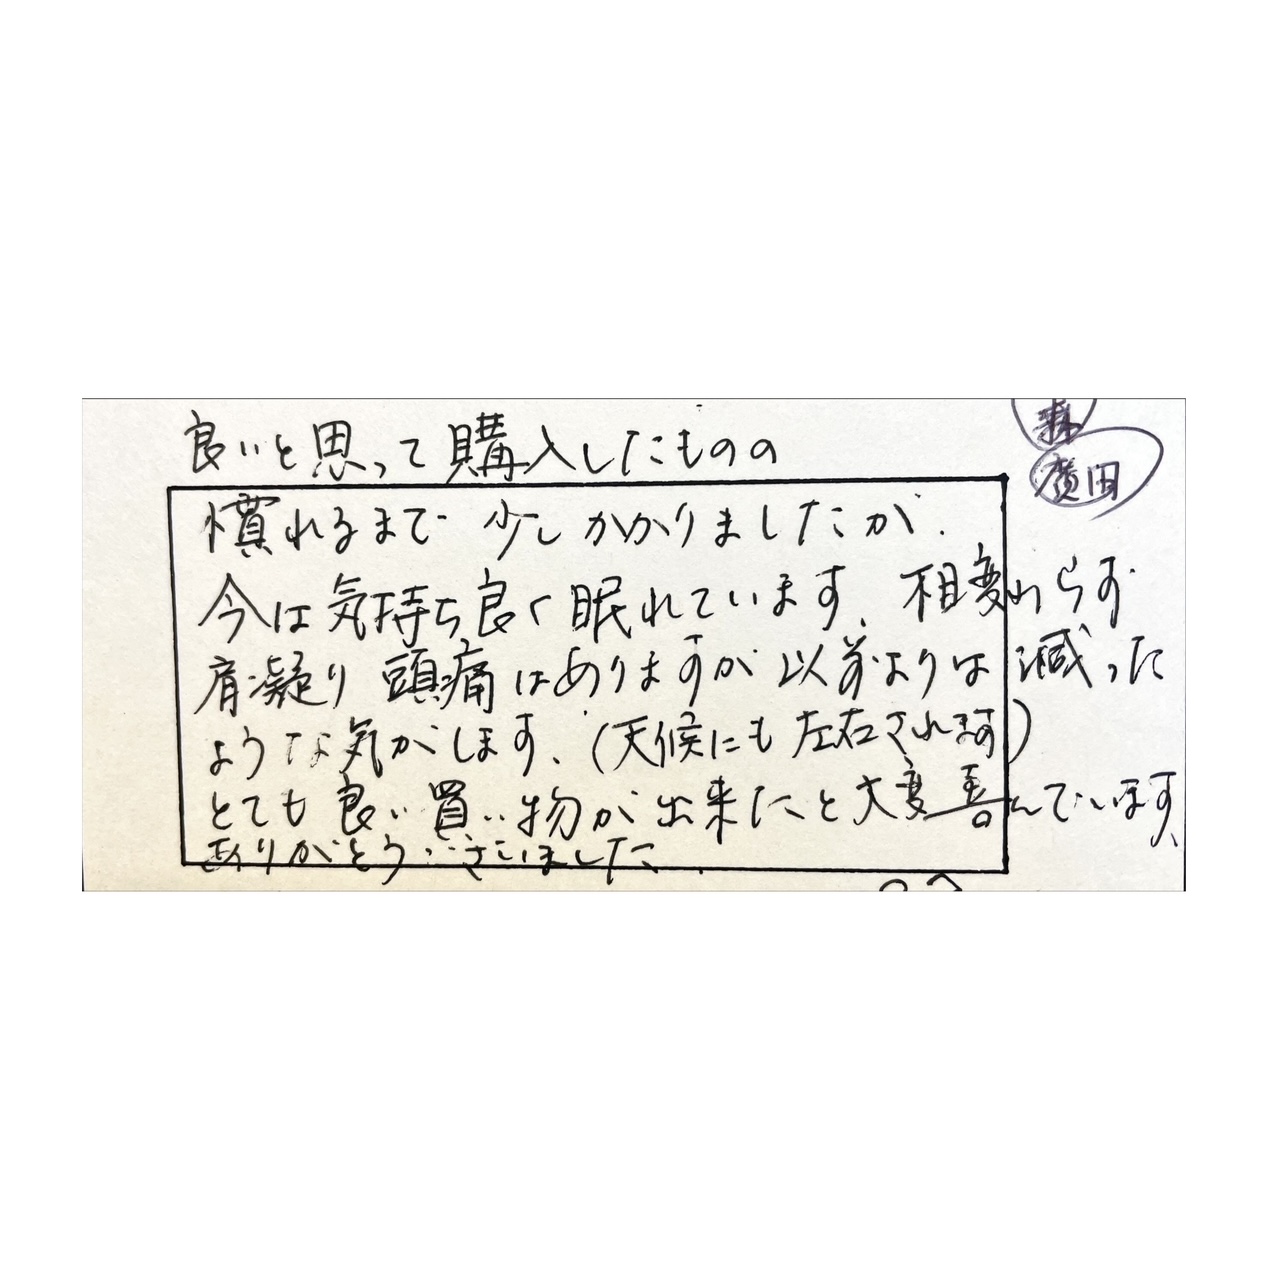 良いと思って購入したものの
慣れるまで少しかかりましたが、
今は気持ち良く眠れています。相変わらず
肩凝り頭痛はありますが以前よりは減った
ような気がします。(天候にも左右されます)
とても良い買い物が出来たと大変喜んでいます。
ありがとうございました
廣田